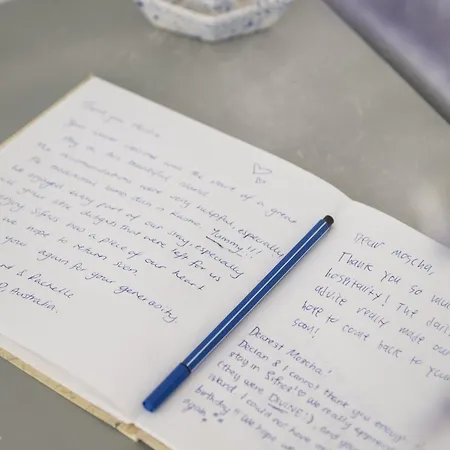 Thank you Moscha,
Your warm welcome was the start of a great
stay on this beautiful island.
The recommendations were very helpful, especially
the traditional lamb dish in Kamares. Yummy!!!
We enjoyed every part of our stay, especially
your little delights that were left for us
enjoy. Sifnos has a piece of our heart
we hope to return soon.
you again for your generosity.
& Rachelle
Australia.
Dear Moscha,
Thank you so much
hospitality! The
advice really made our
hope to come back to your
soon!
Dearest Moscha!
& I cannot thank you enough
stay in Sifnos! We really appreciate
(they were DIVINE!), and your
island. I could not have
birthday! We hope
again